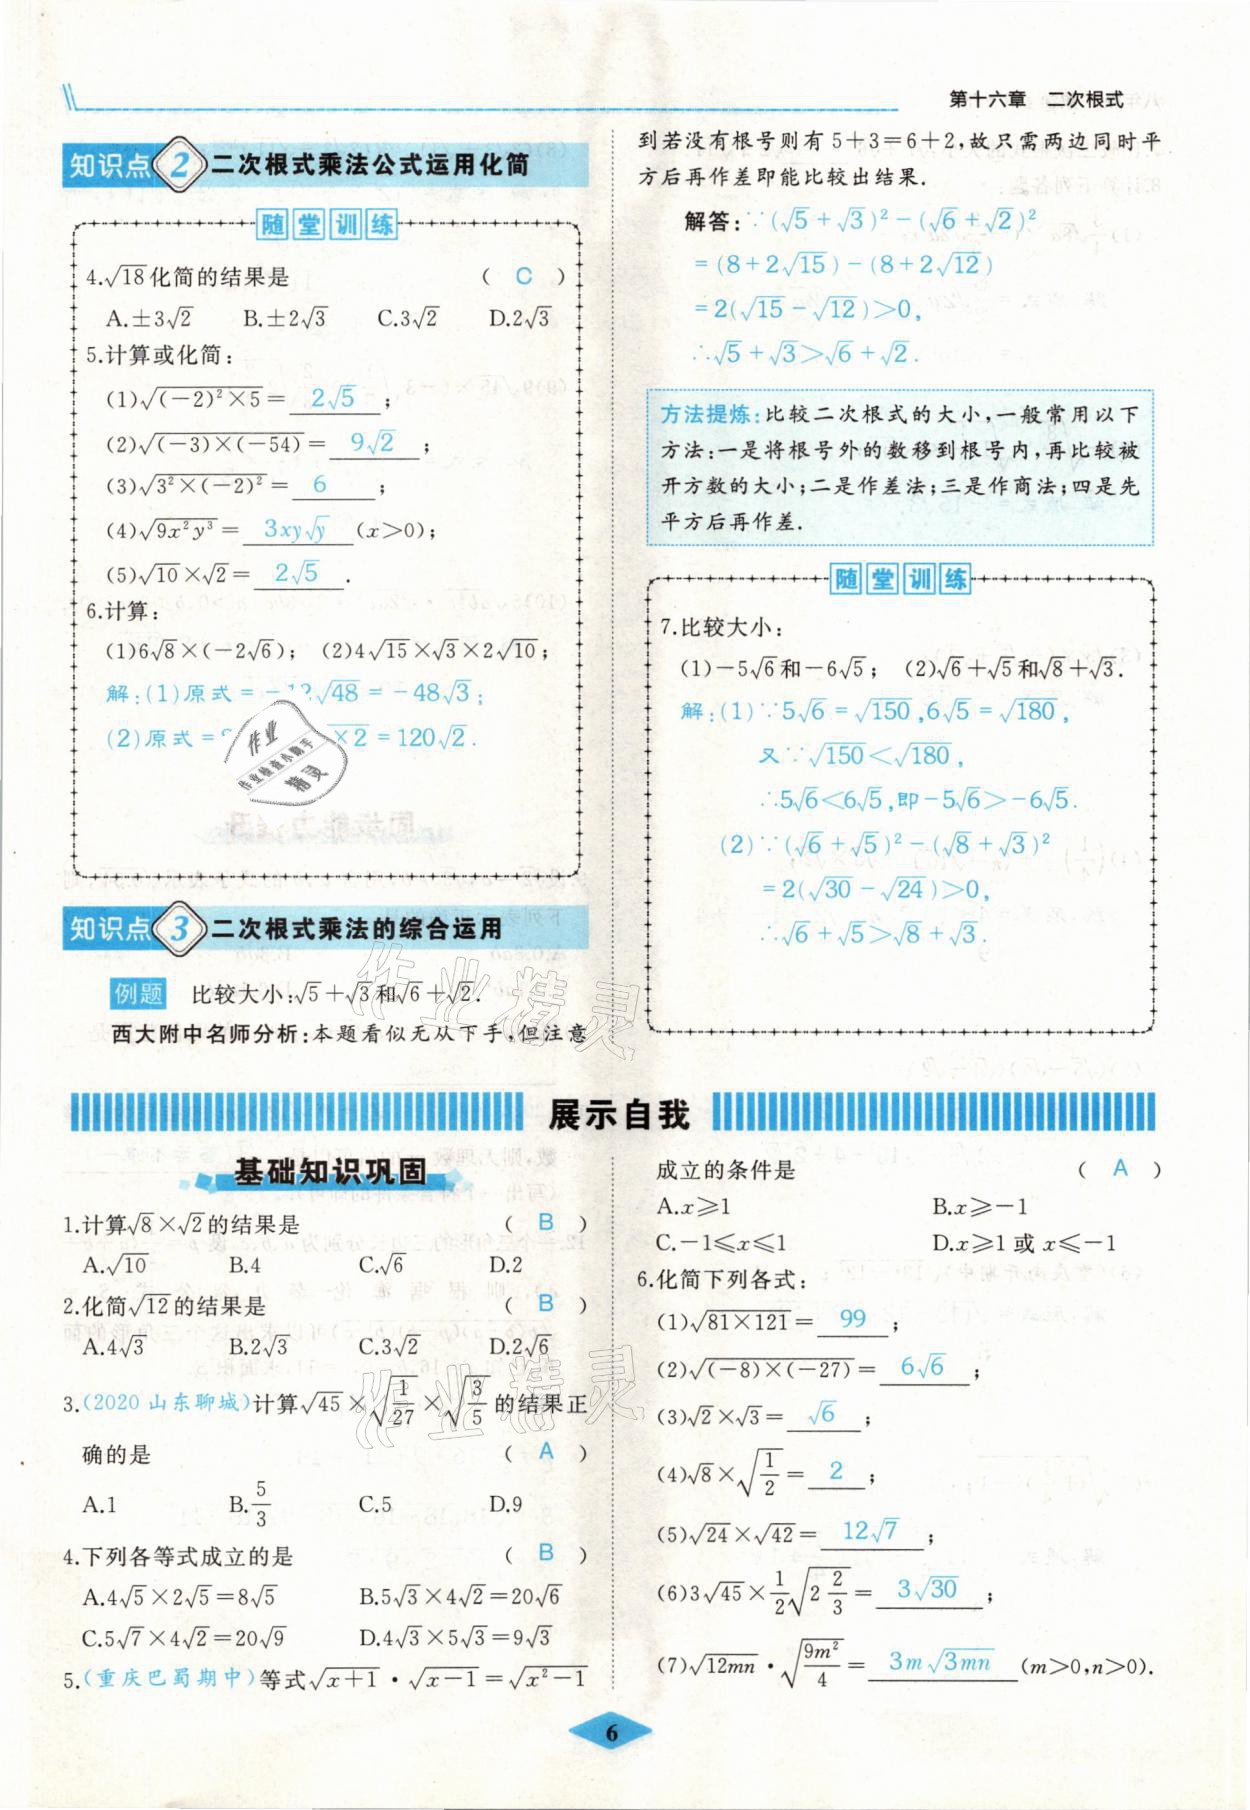 第十六章 二次根式
知识点2 二次根式乘法公式运用化简
随堂训练
4.√18化简的结果是 ( C )
A.±3√2 B.±2√3 C.3√2 D.2√3
5.计算或化简:
(1)√((-2)²×5)=2√5;
(2)√((-3)×(-54))=9√2;
(3)√(3²×(-2)²)=6;
(4)√(9x²y³)=3xy√y(x>0);
(5)√10×√2=2√5.
6.计算:
(1)6√8×(-2√6); (2)4√15×√3×2√10;
解:(1)原式=-12√48=-48√3;
(2)原式= ×2=120√2.
知识点3 二次根式乘法的综合运用
例题 比较大小:√5+√3和√6+√2.
西大附中名师分析:本题看似无从下手,但注意
到若没有根号则有5+3=6+2,故只需两边同时平
方后再作差即能比较出结果.
解答:∵(√5+√3)²-(√6+√2)²
=(8+2√15)-(8+2√12)
=2(√15-√12)>0,
∴√5+√3>√6+√2.
方法提炼:比较二次根式的大小,一般常用以下
方法:一是将根号外的数移到根号内,再比较被
开方数的大小;二是作差法;三是作商法;四是先
平方后再作差.
随堂训练
7.比较大小:
(1)-5√6和-6√5; (2)√6+√5和√8+√3.
解:(1)∵5√6=√150,6√5=√180,
又∵√150<√180,
∴5√6<6√5,即-5√6>-6√5.
(2)∵(√6+√5)²-(√8+√3)²
=2(√30-√24)>0,
∴√6+√5>√8+√3.
展示自我
基础知识巩固
1.计算√8×√2的结果是 ( B )
A.√10 B.4 C.√6 D.2
2.化简√12的结果是 ( B )
A.4√3 B.2√3 C.3√2 D.2√6
3.(2020山东聊城)计算√45×√(1/27)×√(3/5)的结果正
确的是 ( A )
A.1 B.5/3 C.5 D.9
4.下列各等式成立的是 ( B )
A.4√5×2√5=8√5 B.5√3×4√2=20√6
C.5√7×4√2=20√9 D.4√3×5√3=9√3
5.(重庆巴蜀期中)等式√(x+1)·√(x-1)=√(x²-1)
成立的条件是 ( A )
A.x⩾1 B.x⩾-1
C.-1⩽x⩽1 D.x⩾1或x⩽-1
6.化简下列各式:
(1)√(81×121)=99;
(2)√((-8)×(-27))=6√6;
(3)√2×√3=√6;
(4)√8×√(1/2)=2;
(5)√24×√42=12√7;
(6)3√45×1/2√(2 2/3)=3√30;
(7)√(12mn)·√(9m²/4)=3m√(3mn)(m>0,n>0).
6
作业
作业检查小助手
精灵
作业精灵
作业精灵